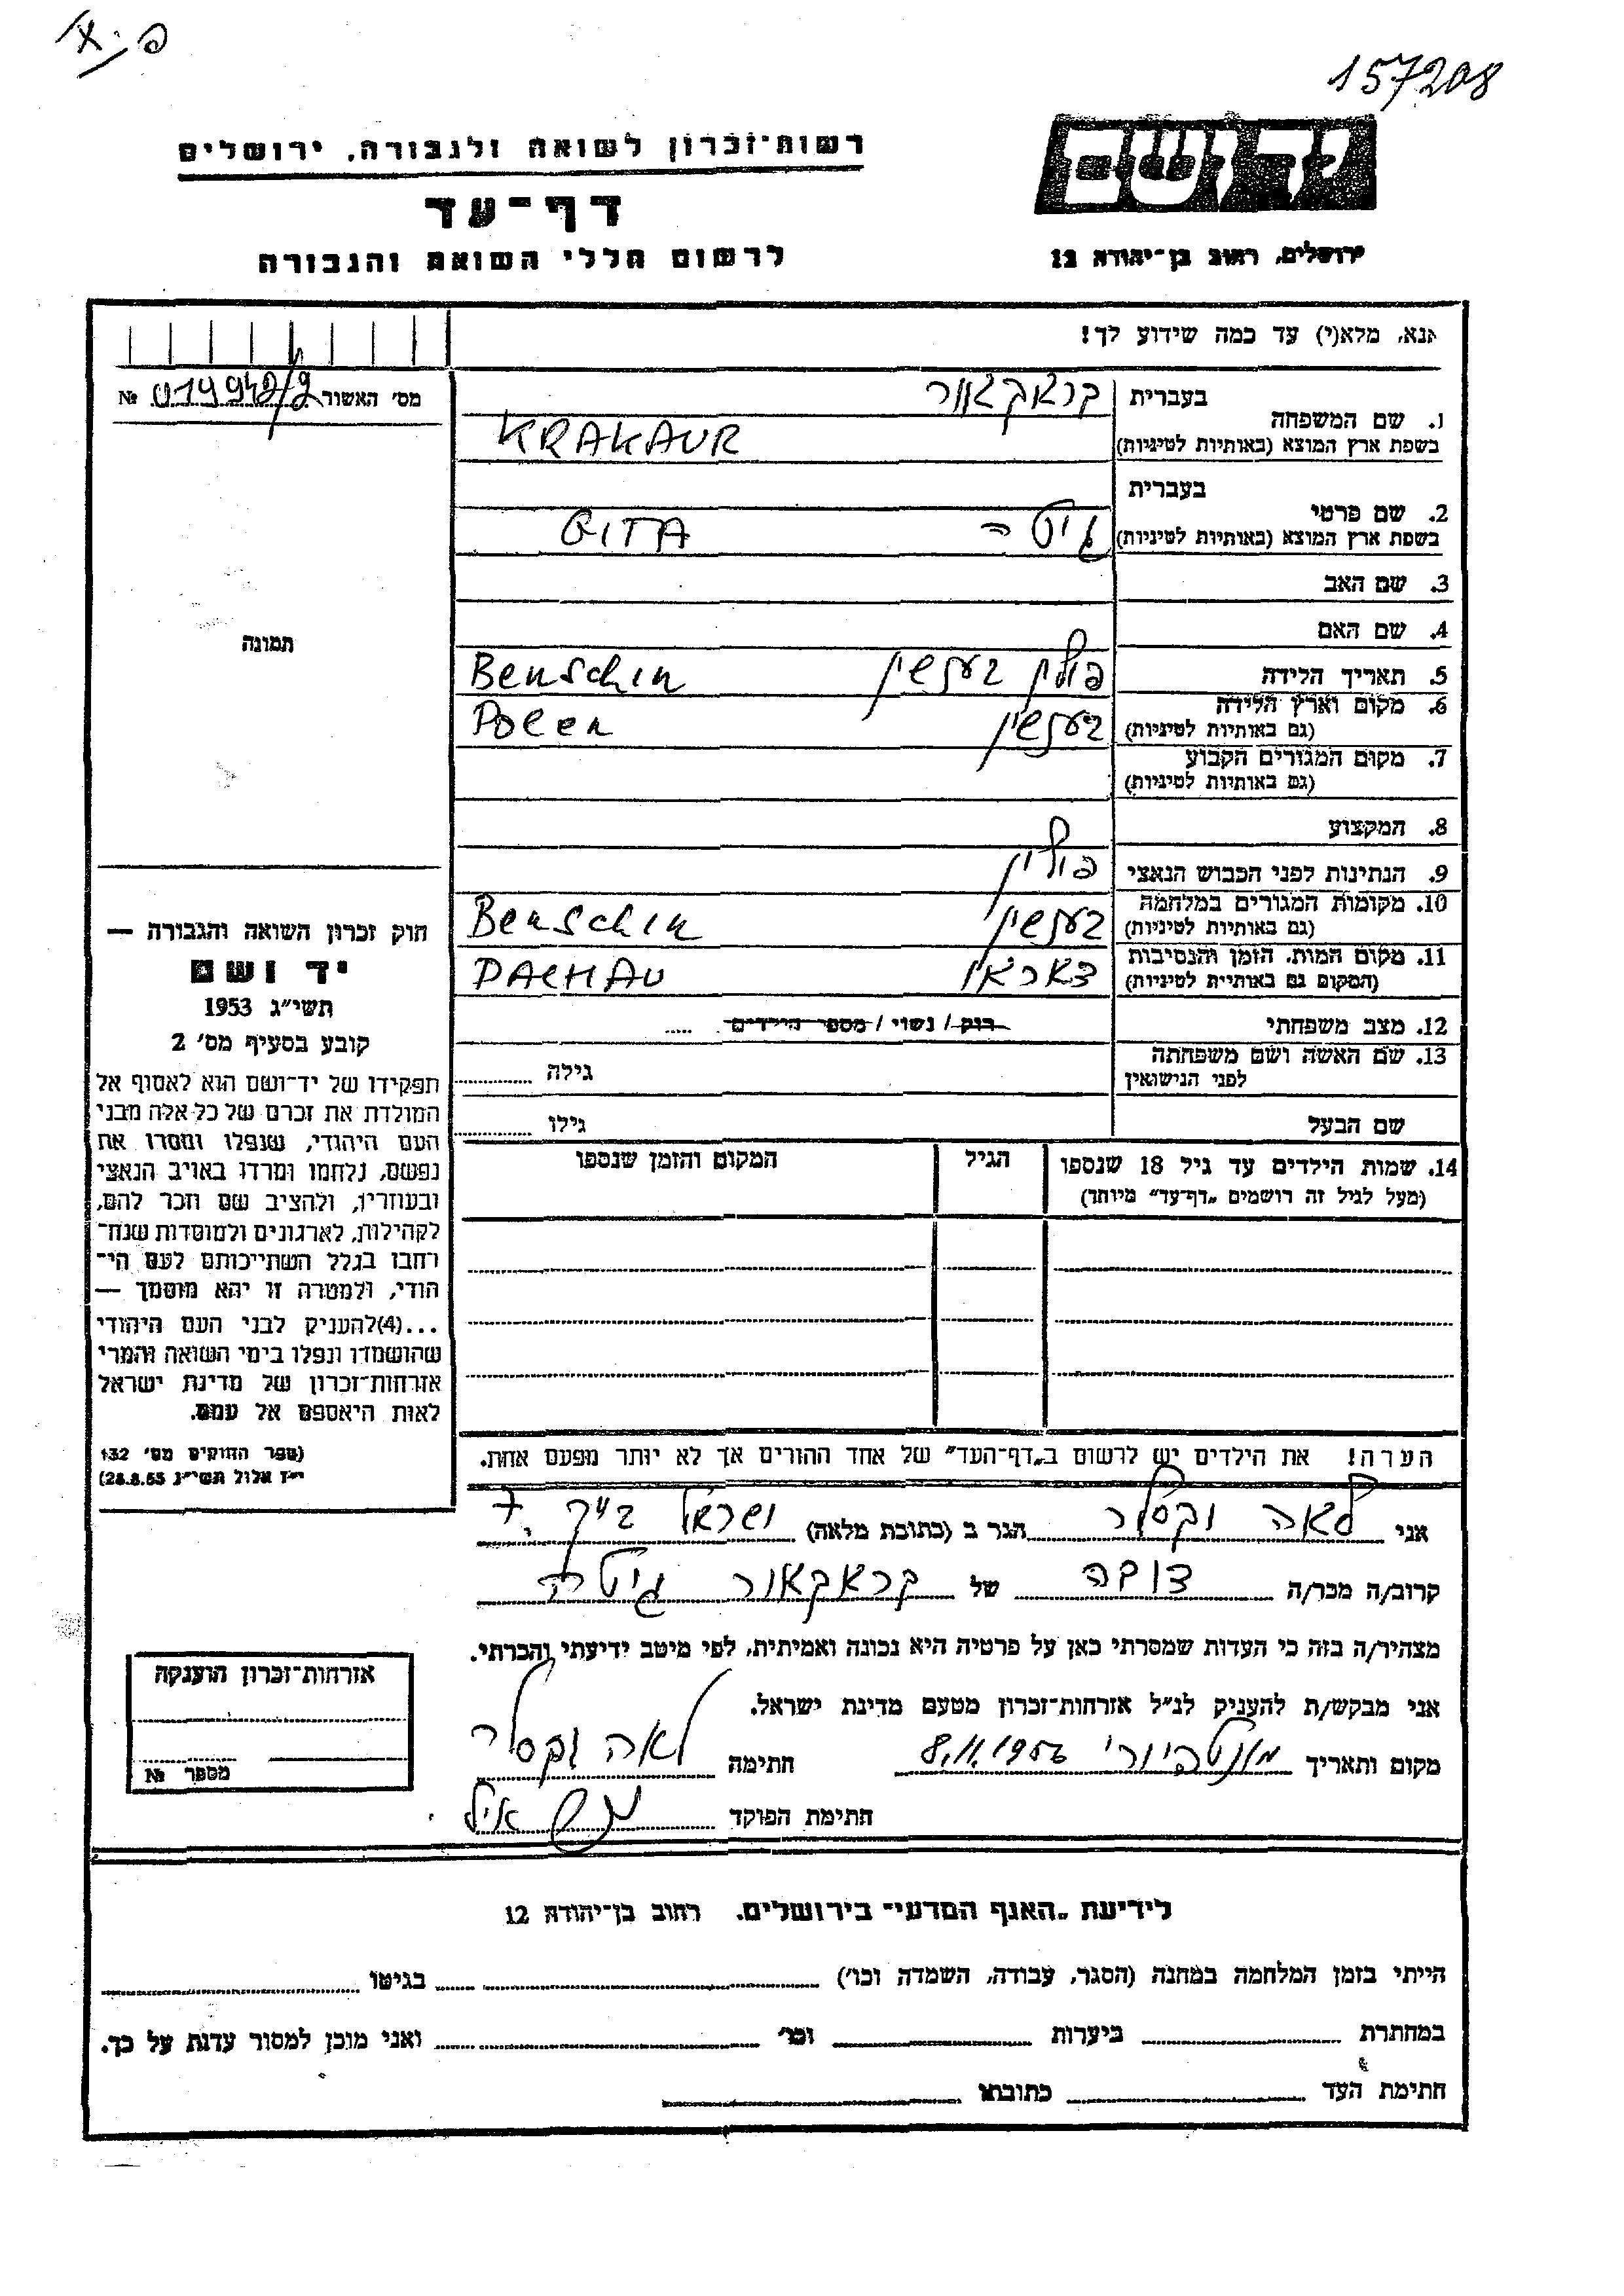 157208
רשות-זכרון לשואה ולגבורה, ירושלים
יד ושם
דף-עד
לרשום חללי השואה והגבורה
ירושלים, רחוב בן-יהודה 12
אנא, מלא(י) עד כמה שידוע לך!
מס' האשור № 019942/2
1. שם המשפחה בעברית קראקאור
בשפת ארץ המוצא (באותיות לטיניות) KRAKAUR
בעברית
2. שם פרטי
בשפת ארץ המוצא (באותיות לטיניות) גיטה GITA
3. שם האב
4. שם האם
תמונה
5. תאריך הלידה פולין בענשין Benschin
6. מקום וארץ הלידה (גם באותיות לטיניות) בענשין Polen
7. מקום המגורים הקבוע (גם באותיות לטיניות)
8. המקצוע
9. הנתינות לפני הכבוש הנאצי פולין
10. מקומות המגורים במלחמה (גם באותיות לטיניות) בענשין Benschin
11. מקום המות, הזמן והנסיבות (המקום גם באותיות לטיניות) DACHAU
12. מצב משפחתי רווק / נשוי / מספר הילדים .....
13. שם האשה ושם משפחתה לפני הנישואין גילה
שם הבעל גילו
14. שמות הילדים עד גיל 18 שנספו הגיל המקום והזמן שנספו
(מעל לגיל זה רושמים „דף-עד" מיוחד)
חוק זכרון השואה והגבורה —
יד ושם
תשי"ג 1953
קובע בסעיף מס' 2
תפקידו של יד-ושם הוא לאסוף אל
המולדת את זכרם של כל אלה מבני
העם היהודי, שנפלו ומסרו את
נפשם, נלחמו ומרדו באויב הנאצי
ובעוזריו, ולהציב שם וזכר להם,
לקהילות, לארגונים ולמוסדות שנח-
רבו בגלל השתייכותם לעם הי-
הודי, ולמטרה זו יהא מוסמך —
...(4)להעניק לבני העם היהודי
שהושמדו ונפלו בימי השואה והמרי
אזרחות-זכרון של מדינת ישראל
לאות היאספם אל עמם.
(ספר החוקים מס' 132
י"ז אלול תשי"ג 28.8.53)
הערה! את הילדים יש לרשום ב„דף-העד" של אחד ההורים אך לא יותר מפעם אחת.
אני לאה וקסלר הגר ב (כתובת מלאה) 7
קרוב/ה מכר/ה דודה של קראקאור גיטה
מצהיר/ה בזה כי העדות שמסרתי כאן על פרטיה היא נכונה ואמיתית, לפי מיטב ידיעתי והכרתי.
אני מבקש/ת להעניק לנ"ל אזרחות-זכרון מטעם מדינת ישראל.
מקום ותאריך 8.11.1956 חתימה לאה וקסלר
חתימת הפוקד
אזרחות-זכרון הוענקה
מספר №
לידיעת „האגף המדעי" בירושלים. רחוב בן-יהודה 12
הייתי בזמן המלחמה במחנה (הסגר, עבודה, השמדה וכו') בגיטו
במחתרת ביערות וכו' ואני מוכן למסור עדות על כך.
חתימת העד כתובתו